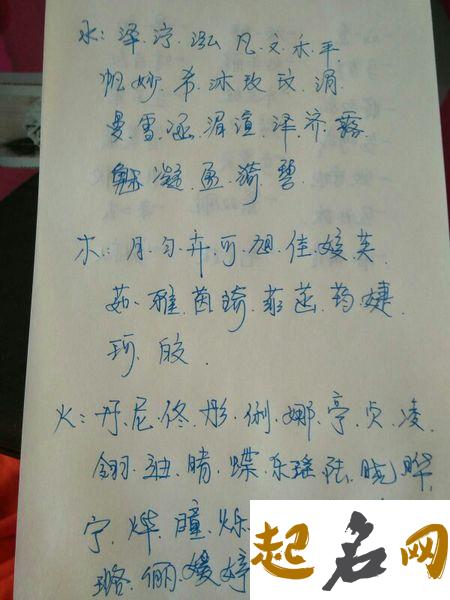 水：泽.泞.泓.凡.文.禾.平.
帆妙.希.冰玫.玟.湄
曼雪.涵.湄.渲.泽.济.露
魅.凝.盈.漪.碧.
木：月.匀.卉.可.旭.佳.媛.芙
茹.雅.茵.琦.菲.蕊.药.婕.
珂.皎.
火：丹.尼.佟.彤.俐.娜.亭.贞.凌.
翎.迪.晴.蝶.东瑶.陆.晓.晔.
宁.烨.瞳.烁
璐.俪.媛.婷
起名网